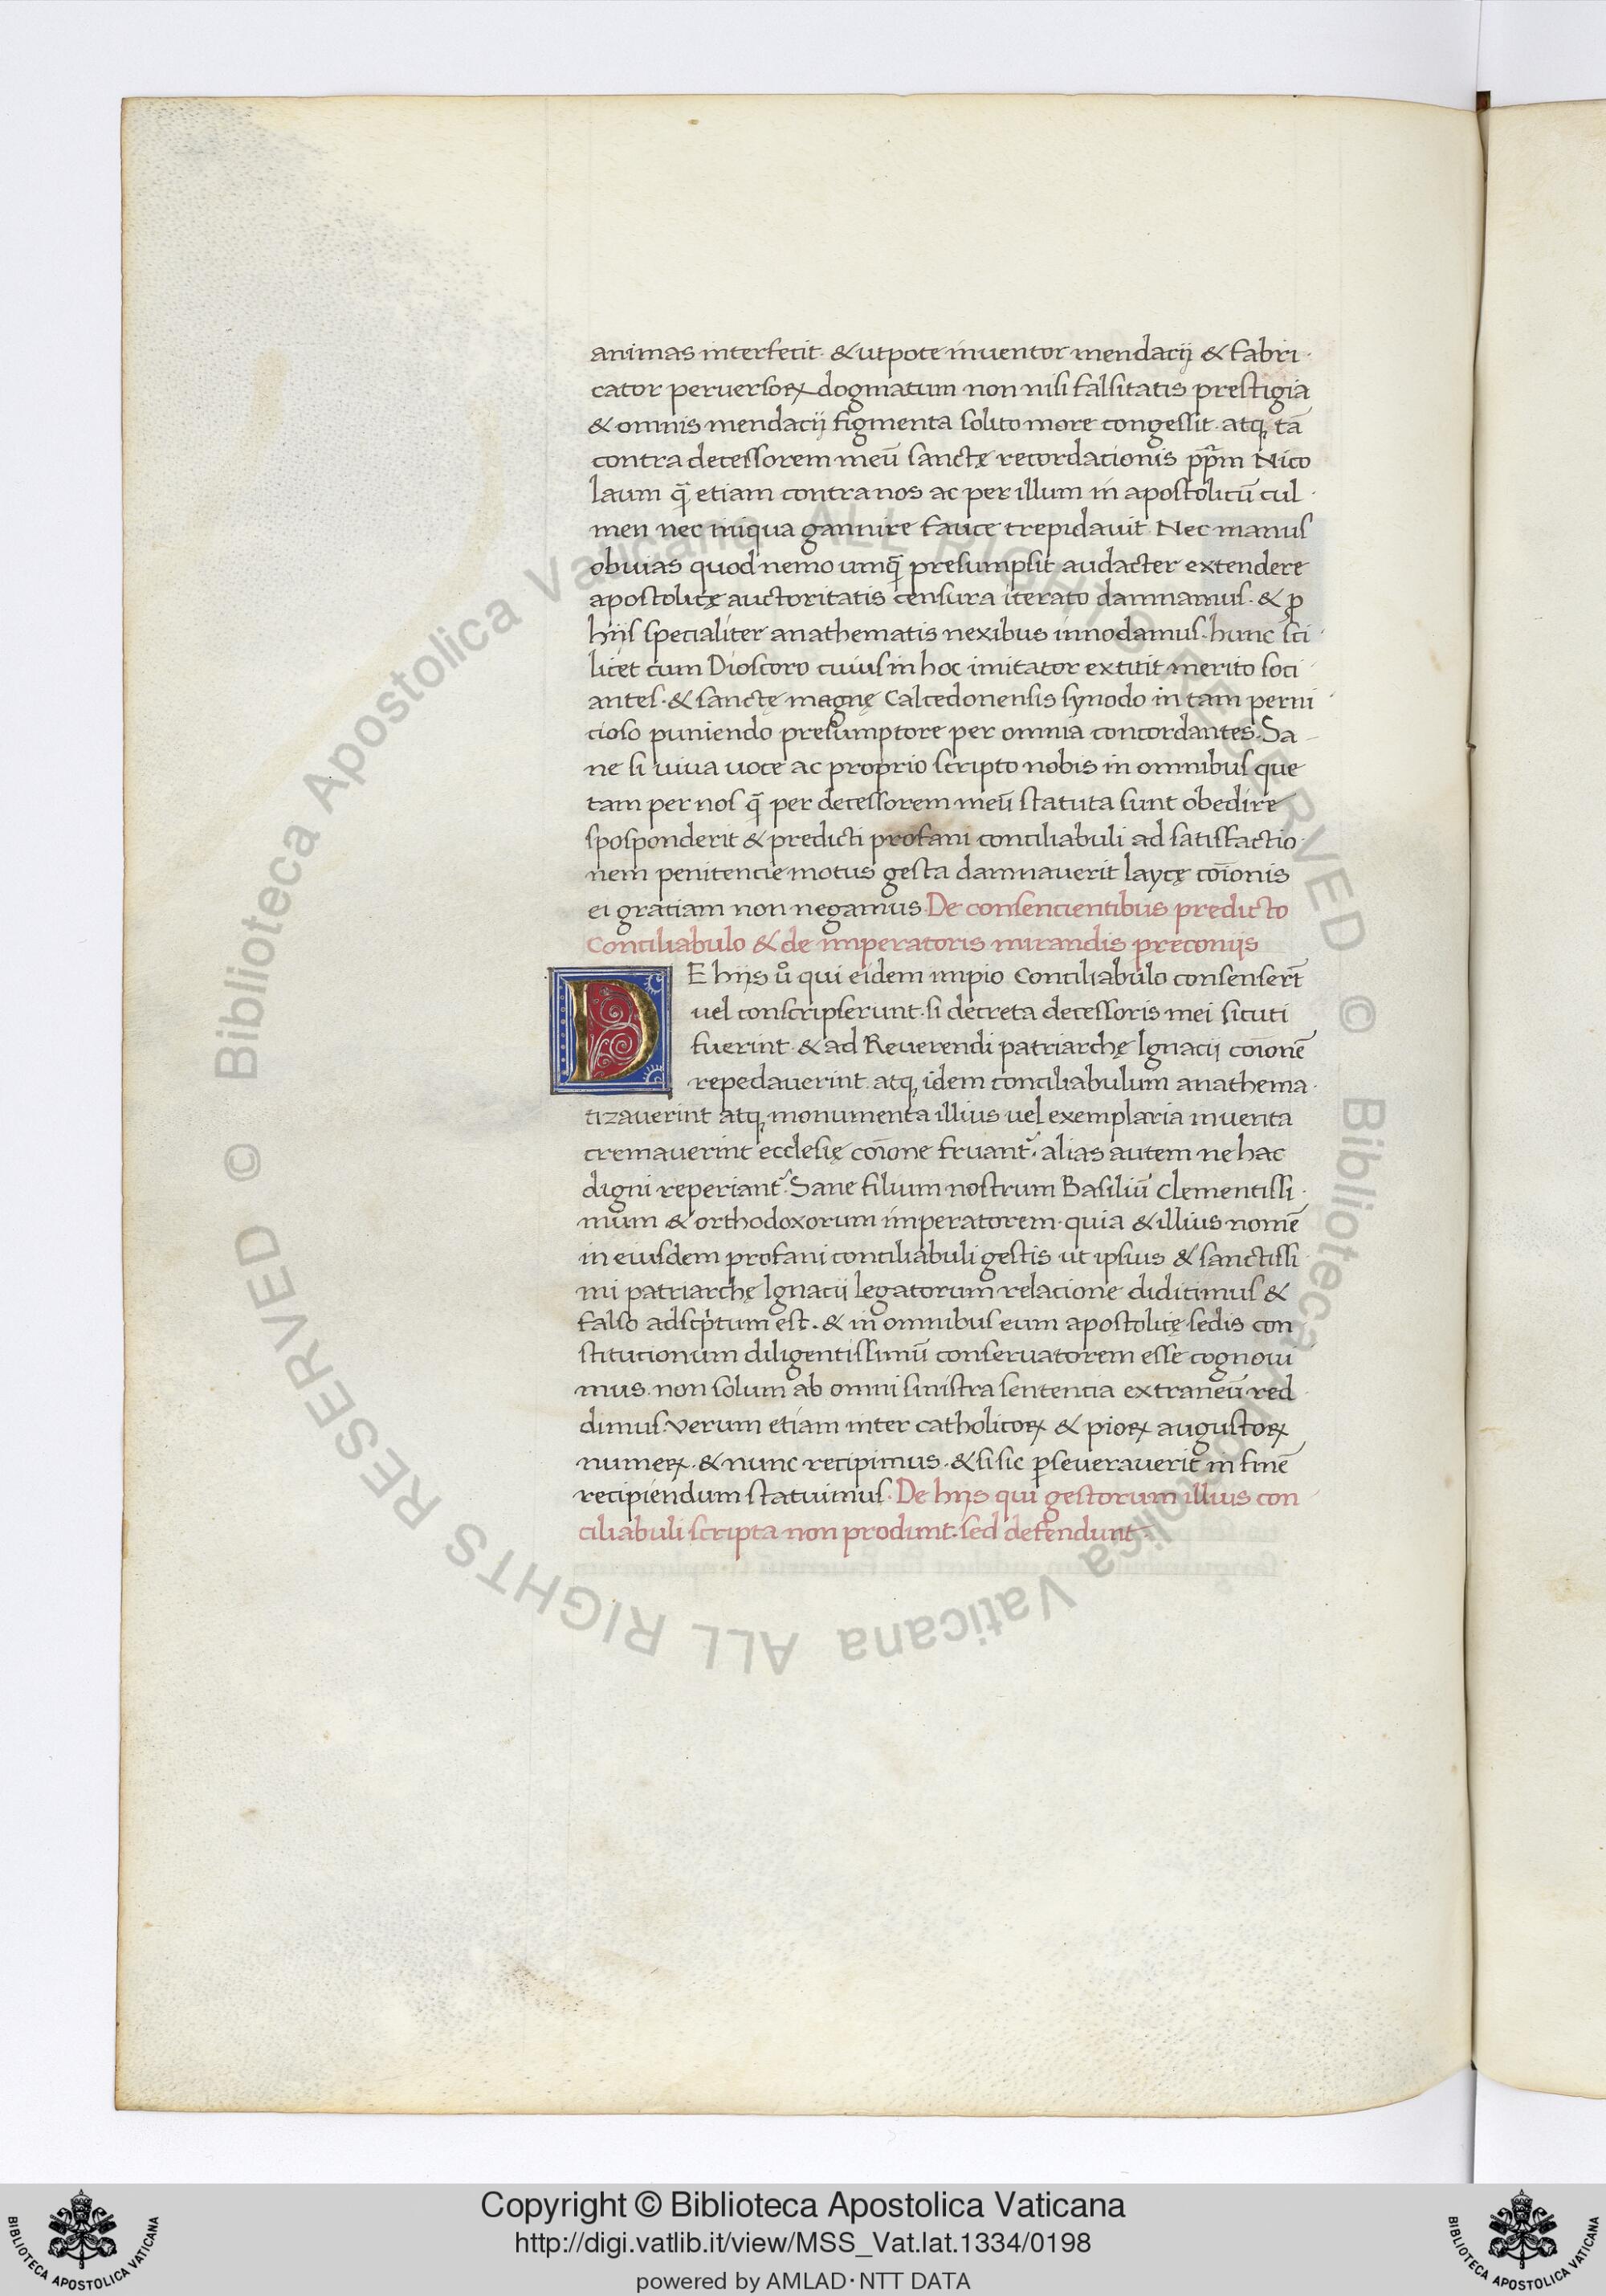 animas interfecit· & utpote inventor mendacij & fabri·
cator perversoꝝ dogmatum non nisi falsitatis prestigia
& omnis mendacij figmenta solito more congessit· atq, tā
contra decessorem meū sanctę recordacionis pp̄m Nico
laum q̄ etiam contra nos ac per illum in apostolicū cul·
men nec iniqua gannire fauce trepidavit Nec manus
obvias quod nemo umq̄ presumpsit audacter extendere
apostolicę auctoritatis censura iterato damnamus· & ꝓ
hijs specialiter anathematis nexibus innodamus· hunc sci·
licet cum Dioscoro cuius in hoc imitator extitit merito soci·
antes· & sanctę magnę Calcedonensis synodo in tam perni·
cioso puniendo presumptore per omnia concordantes· Sa-
ne si viva voce ac proprio scripto nobis in omnibus que
tam per nos q̄ per decessorem meū statuta sunt obedire
sposponderit & predicti profani conciliabuli ad satisfactio·
nem penitencie motus gesta damnaverit laycę cōionis
ei graciam non negamus· De consencientibus predicto
Conciliabulo & de imperatoris mirandis preconijs
DE hijs uͦ qui eidem impio Conciliabulo consenserт̄
vel conscripserunt· si decreta decessoris mei sicuti
fuerint· & ad Reverendi patriarchę Ignacij coīonē
repedaverint· atq, idem conciliabulum anathema·
tizaverint atq, monumenta illius vel exemplaria inventa
cremaverint ecclesię coīone fruant᷑· alias autem ne hac
digni reperiant᷑· Sane filium nostrum Basiliū Clementissi·
mum & orthodoxorum imperatorem· quia & illius nomē
in eiusdem profani conciliabuli gestis ut ipsius & sanctissi·
mi patriarchę Ignacij legatorum relacione didicimus &
falso adsc̓ptum est· & in omnibus eum apostolicę sedis con
stitucionum diligentissimū conservatorem esse cognovi
mus· non solum ab omni sinistra sentencia extraneū red·
dimus· verum etiam inter catholicoꝝ & pioꝝ augustoꝝ
numeꝝ· & nunc recipimus· & si sic ꝑseveraverit in finē
recipiendum statuimus· De hijs qui gestorum illius con
ciliabuli scripta non produnt· sed defendunt·
© Biblioteca Apostolica Vaticana ALL RIGHTS RESERVED © Biblioteca Apostolica Vaticana ALL RIGHTS RESERVED
Copyright © Biblioteca Apostolica Vaticana
http://digi.vatlib.it/view/MSS_Vat.lat.1334/0198
powered by AMLAD·NTT DATA
BIBLIOTECA APOSTOLICA VATICANA
BIBLIOTECA APOSTOLICA VATICANA